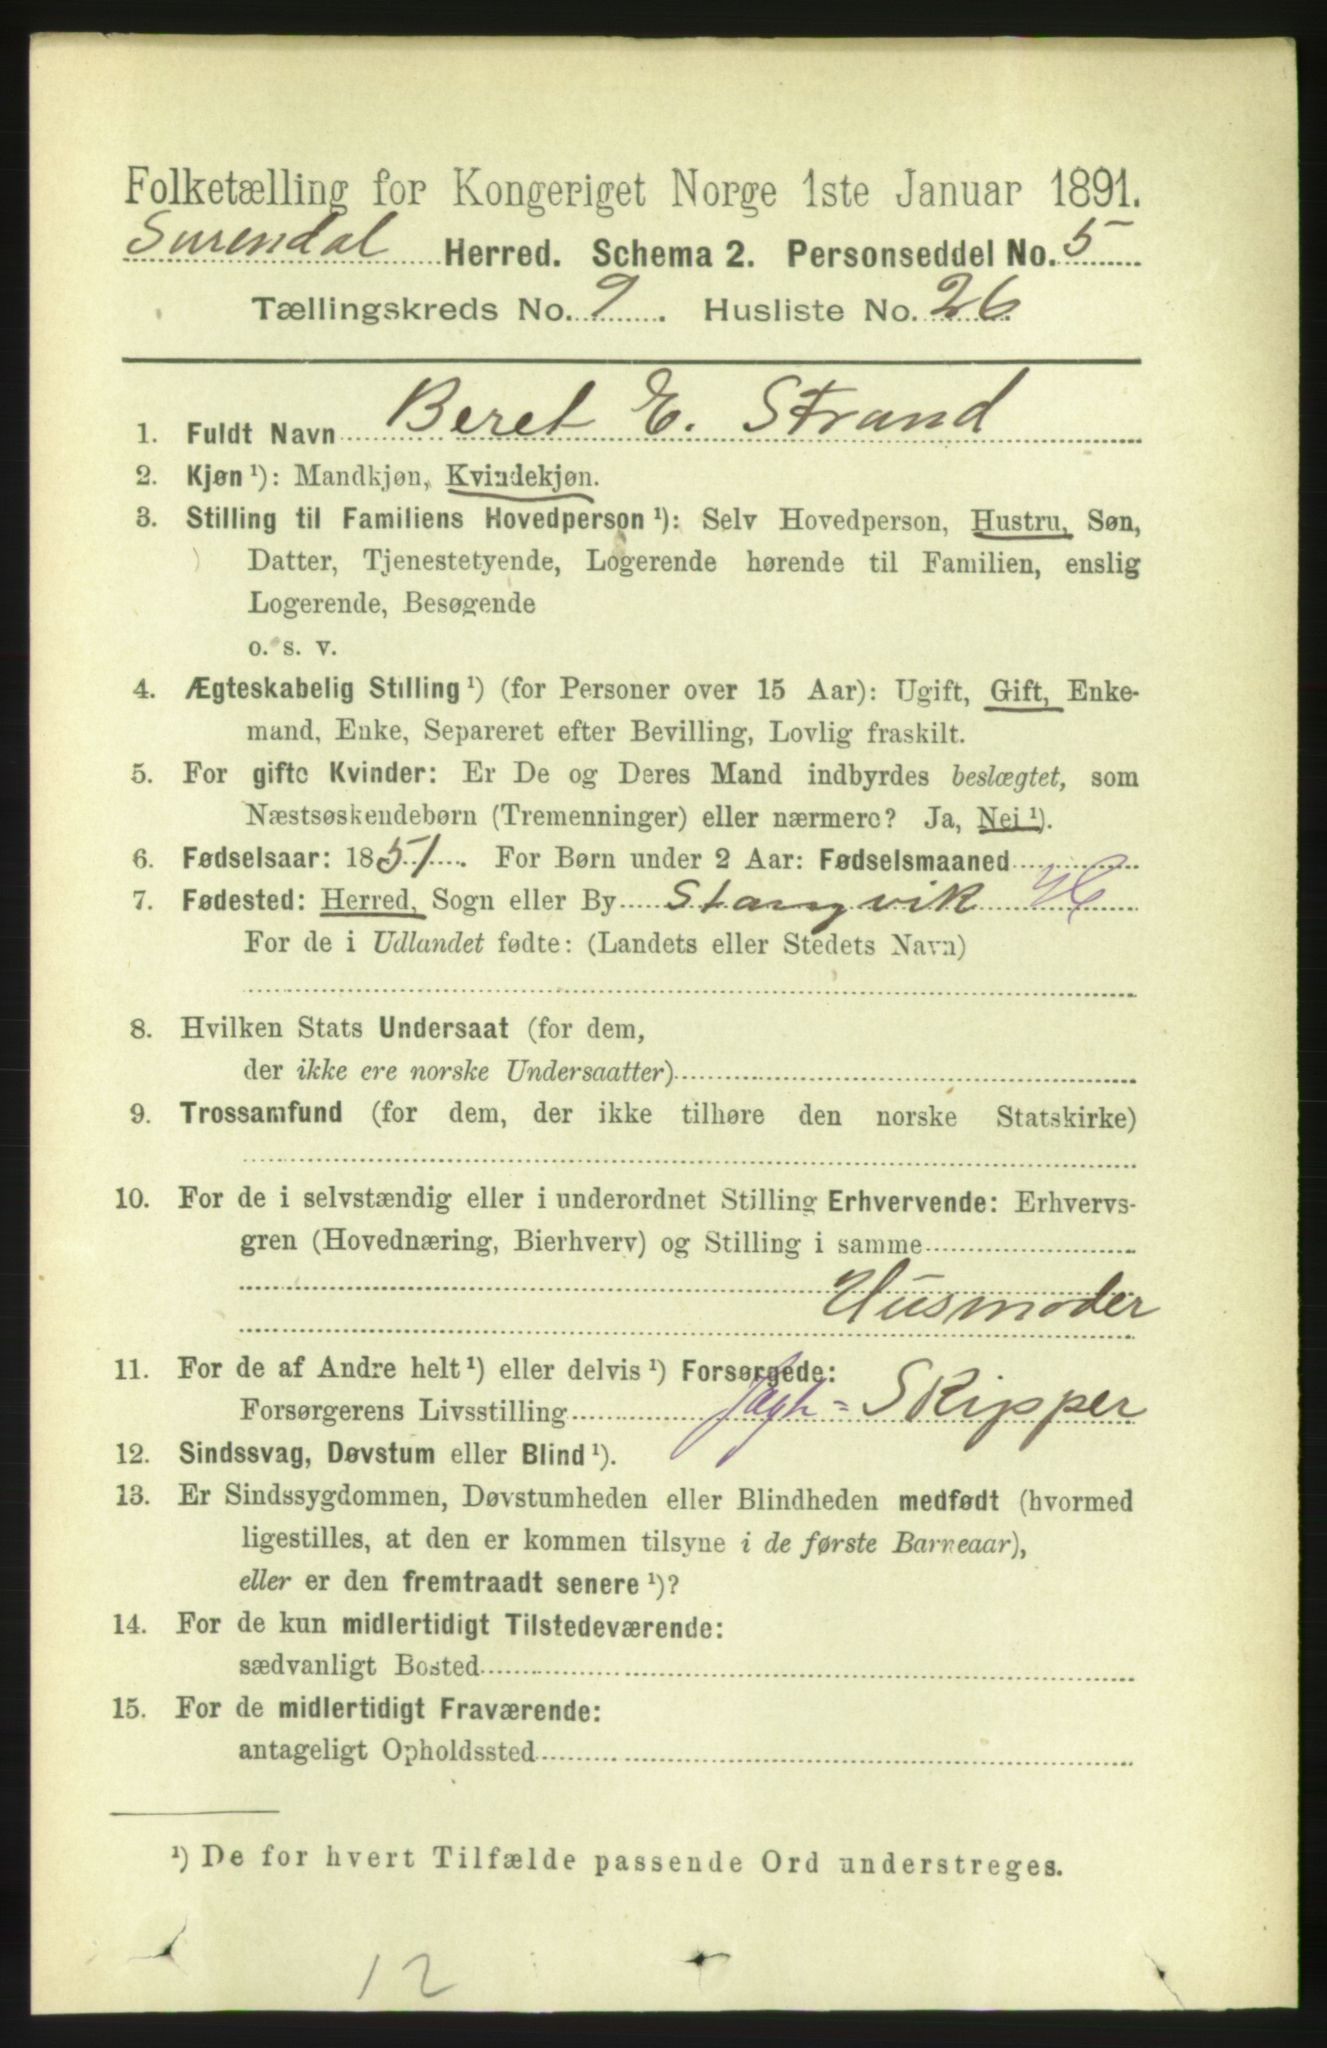 Folketælling for Kongeriget Norge 1ste Januar 1891.
Surendal Herred. Schema 2. Personseddel No. 5
Tællingskreds No. 9. Husliste No. 26
1. Fuldt Navn Beret E. Strand
2. Kjøn ¹): Mandkjøn, Kvindekjøn.
3. Stilling til Familiens Hovedperson ¹): Selv Hovedperson, Hustru, Søn,
Datter, Tjenestetyende, Logerende hørende til Familien, enslig
Logerende, Besøgende
o. s. v.
4. Ægteskabelig Stilling ¹) (for Personer over 15 Aar): Ugift, Gift, Enke-
mand, Enke, Separeret efter Bevilling, Lovlig fraskilt.
5. For gifte Kvinder: Er De og Deres Mand indbyrdes beslægtet, som
Næstsøskendebørn (Tremenninger) eller nærmere? Ja, Nei ¹).
6. Fødselsaar: 1851. For Børn under 2 Aar: Fødselsmaaned
7. Fødested: Herred, Sogn eller By Stangvik
For de i Udlandet fødte: (Landets eller Stedets Navn)
8. Hvilken Stats Undersaat (for dem,
der ikke ere norske Undersaatter)
9. Trossamfund (for dem, der ikke tilhøre den norske Statskirke)
10. For de i selvstændig eller i underordnet Stilling Erhvervende: Erhvervs-
gren (Hovednæring, Bierhverv) og Stilling i samme
Husmoder
11. For de af Andre helt ¹) eller delvis ¹) Forsørgede:
Forsørgerens Livsstilling Jagt= Skipper
12. Sindssvag, Døvstum eller Blind ¹).
13. Er Sindssygdommen, Døvstumheden eller Blindheden medfødt (hvormed
ligestilles, at den er kommen tilsyne i de første Barneaar),
eller er den fremtraadt senere ¹)?
14. For de kun midlertidigt Tilstedeværende:
sædvanligt Bosted
15. For de midlertidigt Fraværende:
antageligt Opholdssted
¹) De for hvert Tilfælde passende Ord understreges.
12